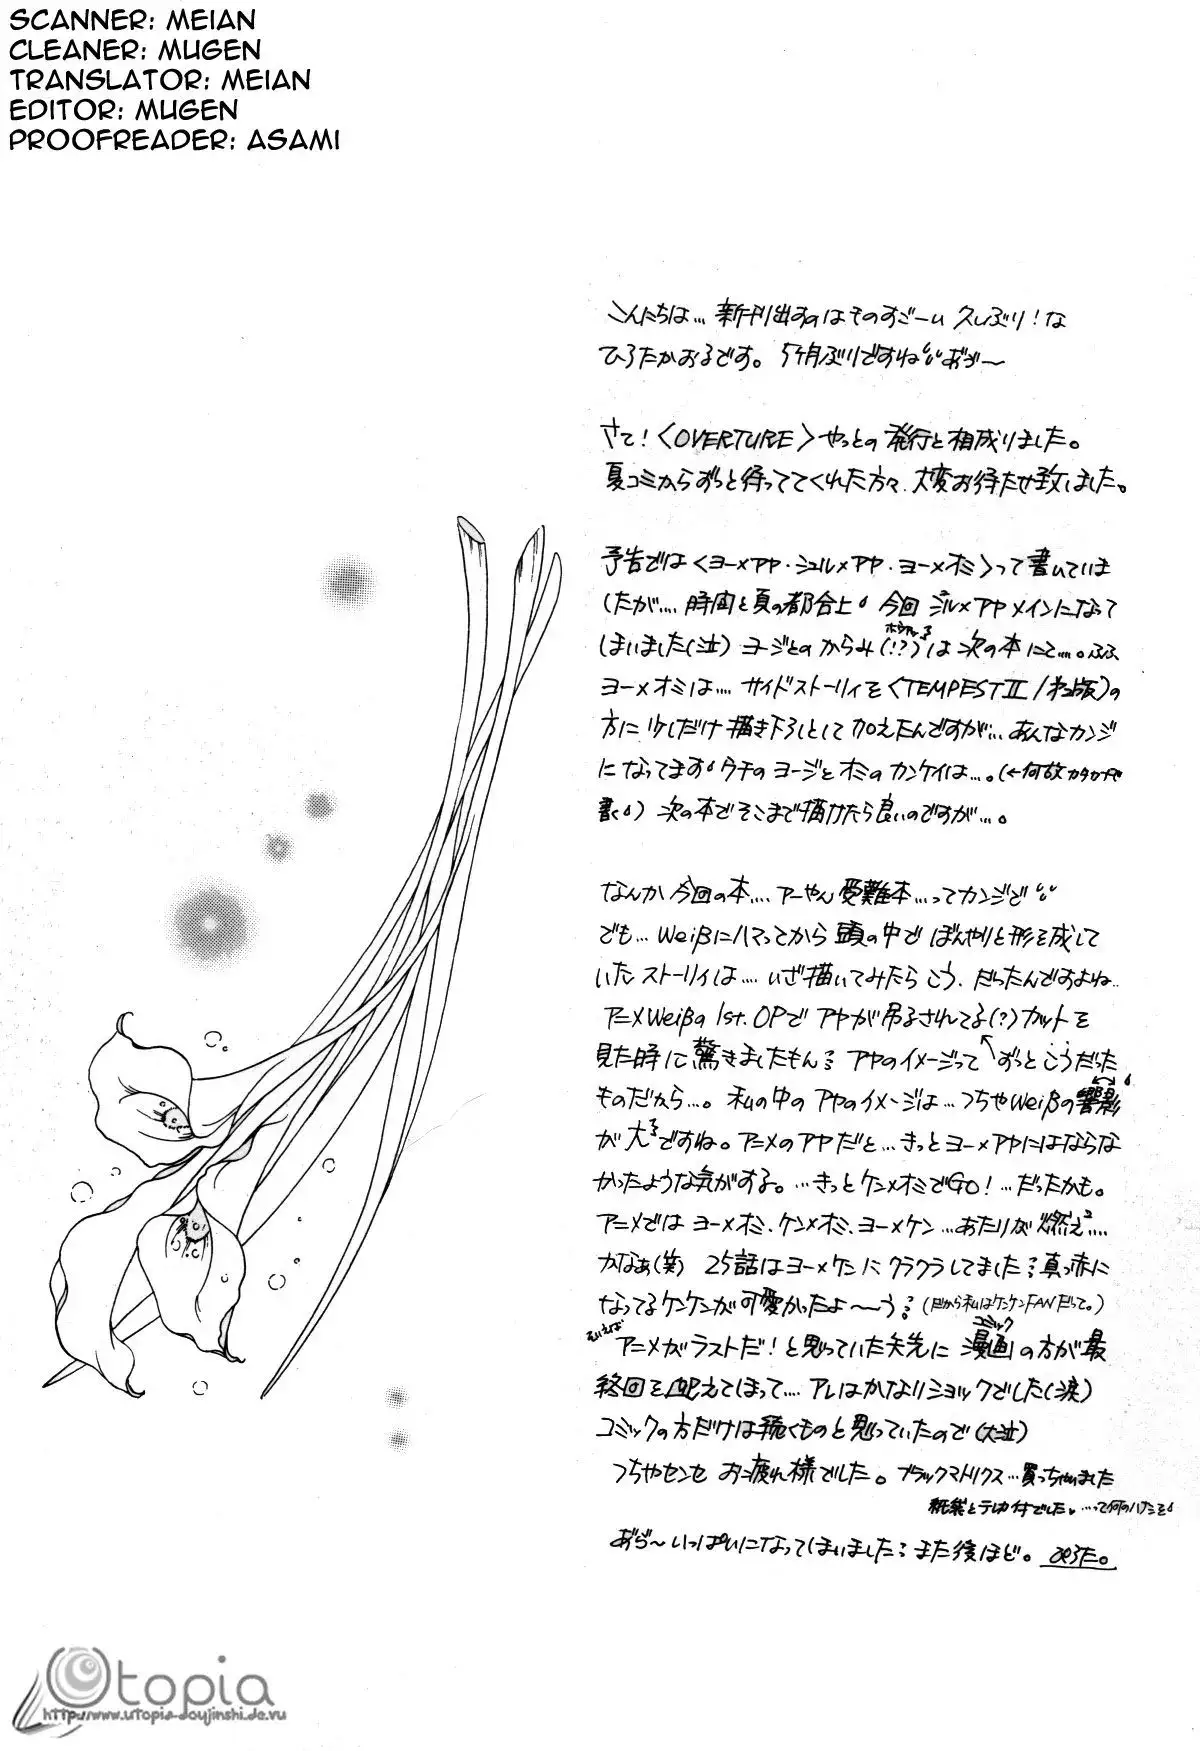 SCANNER: MEIAN
CLEANER: MUGEN
TRANSLATOR: MEIAN
EDITOR: MUGEN
PROOFREADER: ASAMI
こんにちは… 新刊出すのはものすごーい 久しぶり!な
ひろたかおるです。5ケ月ぶりですね おぉ〜
さて!〈OVERTURE〉やっとの発行と相成りました。
夏コミからずっと待っててくれた方々、大変お待たせ致しました。
予告では〈ヨー×アヤ・シュル×アヤ・ヨー×オミ〉って書いていま
したが…. 時間と頁の都合上 今回 シュル×アヤメインになって
しまいました(泣) ヨージとのからみ(!?)は次の本にて…。ふふ
ヨー×オミは…. サイドストーリィを〈TEMPESTⅡ/〉の
方に少しだけ描き下ろしとして加えたんですが… あんなカンジ
になってます ウチのヨージとオミのカンケイは…。(←何故カタカナで
書く) 次の本でそこまで描けたら良いのですが…。
なんか今回の本…. アーやん受難本…ってカンジで
でも… Weiβにハマってから頭の中でぼんやりと形を成して
いたストーリィは…. いざ描いてみたらこう、だったんですよね..
アニメWeiβa 1st. OPでアヤが吊るされてる(?)カットを
見た時に驚きましたもん アヤのイメージって ずっとこうだった
ものだから…。私の中のアヤのイメージは… つちやWeiβの影響
が大きいですね。アニメのアヤだと… きっとヨー×アヤにはならな
かったような気がする。…きっとケン×オミでGO!…だったかも。
アニメではヨー×オミ、ケン×オミ、ヨー×ケン…あたりが"燃え"….
かなぁ(笑) 25話はヨー×ケンにクラクラしてました 真っ赤に
なってるケンケンが可愛かったよ〜う (だから私はケンケンFANだって。)
そいえば アニメがラストだ!と思っていた矢先に 漫画の方が最
コミック
終回を迎えてしまって…. アレはかなりショックでした(涙)
コミックの方だけは続くものと思っていたので(大泣)
つちやセンセ お疲れ様でした。ブラックマトリクス…買っちゃいました
紙袋とテレカ付でした。…って何のハナシを
おぉ〜いっぱいになってしまいました また後ほど。ひろた。
Utopia
http://www.utopia-doujinshi.de.vu